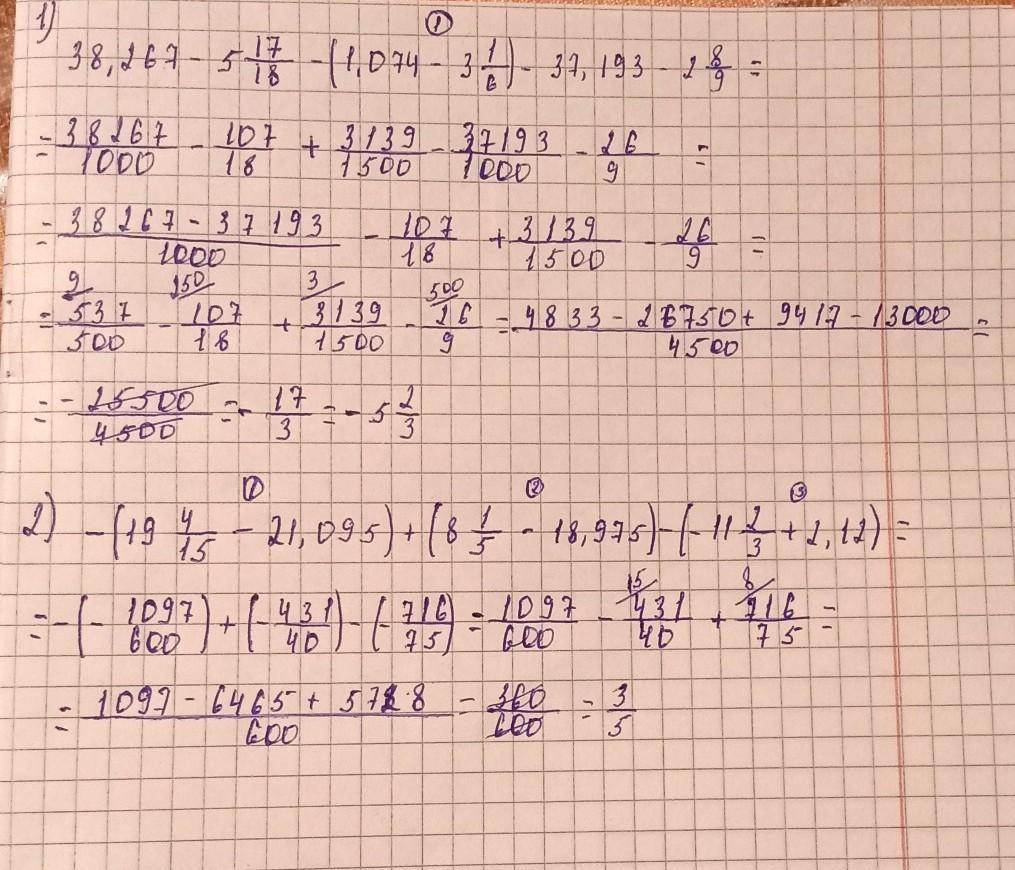 1) ①
38,267 - 5 17/18 - (1,074 - 3 1/6) - 37,193 - 2 8/9 =
= 38267/1000 - 107/18 + 3139/1500 - 37193/1000 - 26/9 =
= (38267 - 37193)/1000 - 107/18 + 3139/1500 - 26/9 =
9/ 250/ 3/ 500/
= 537/500 - 107/18 + 3139/1500 - 26/9 = (4833 - 26750 + 9417 - 13000)/4500 =
= -25500/4500 = - 17/3 = - 5 2/3
① ② ③
2) -(19 4/15 - 21,095) + (8 1/5 - 18,975) - (-11 2/3 + 2,12) =
15/ 8/
= -(- 1097/600) + (- 431/40) - (- 716/75) = 1097/600 - 431/40 + 716/75 =
= (1097 - 6465 + 5728)/600 = 360/600 = 3/5